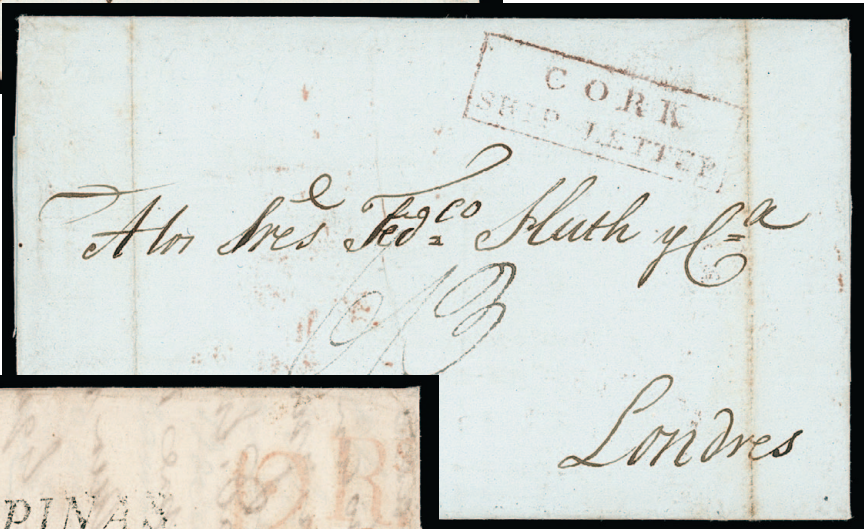 CORK
SHIP LETTER
A los Sres Fedco Huth y Ca
Londres
PINAS